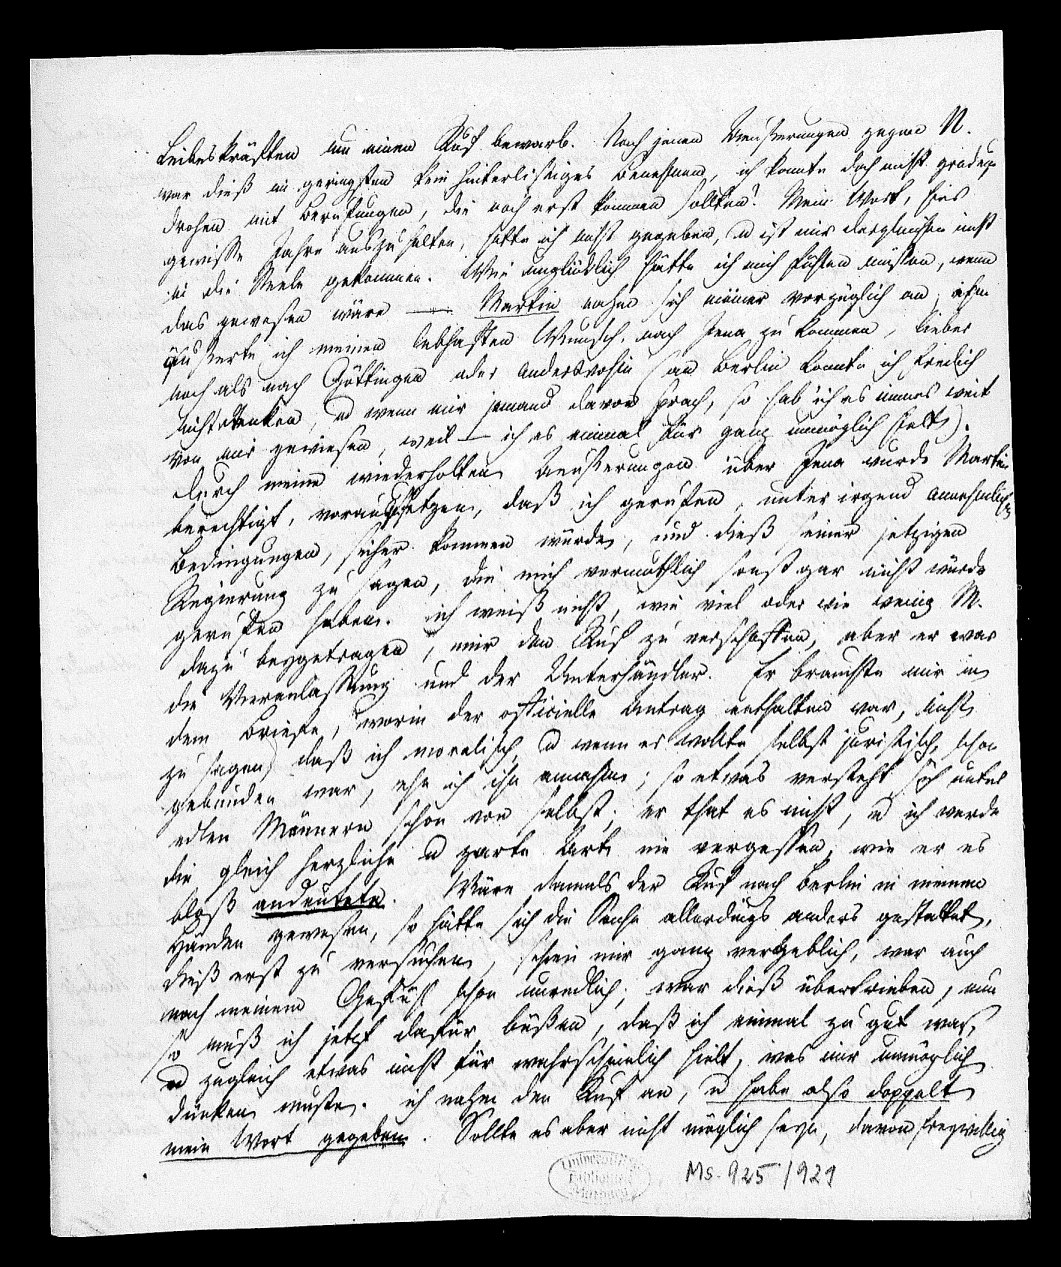 Leibeskräften um einen Ruf bewarb. Nach jenen Aeußerungen gegen N.
war dieß im geringsten kein hinterlistiges Benehmen, ich konnte doch nicht gradezu
drohen mit Berufungen, die noch erst kommen sollten! Mein Wort, hier
gewisse Jahre auszuhalten, hatte ich nicht gegeben, u ist mir dergleichen nicht
in die Seele gekommen. Wie unglücklich hätte ich mich fühlen müssen, wenn
das gewesen wäre — Martin nahm sich meiner vorzüglich an, ihm
äußerte ich meinen lebhaften Wunsch, nach Jena zu kommen, lieber
noch als nach Göttingen oder anderswohin (an Berlin konnte ich freilich
nicht denken, u wenn mir jemand davon sprach, so hab ich es immer weit
von mir gewiesen, weil — ich es einmal für ganz unmöglich hielt).
Durch meine wiederholten Aeußerungen über Jena wurde Martin
berechtigt, vorauszusetzen, daß ich gerufen, unter irgend annehmlichen
Bedingungen, sicher kommen würde, und dieß seiner jetzigen
Regierung zu sagen, die mich vermuthlich sonst gar nicht würde
gerufen haben. Ich weiß nicht, wie viel oder wie wenig M.
dazu beygetragen, mir den Ruf zu verschaffen, aber er war
die Veranlassung und der Unterhändler. Er brauchte mir in
dem Briefe, worin der officielle Antrag enthalten war, nicht
zu sagen, daß ich moralisch, u wenn er wollte, selbst juristisch, schon
gebunden war, ehe ich ihn annahm; so etwas versteht sich unter
edlen Männern schon von selbst; er that es nicht, u ich werde
die gleich herzliche u zarte Art nie vergessen, wie er es
bloß andeutete. Wäre damals der Ruf nach Berlin in meinen
Händen gewesen, so hätte sich die Sache allerdings anders gestaltet,
dieß erst zu versuchen, schien mir ganz vergeblich, war auch
nach meinem Gefühl schon unredlich; war dieß übertrieben, nun
so muß ich jetzt dafür büßen, daß ich einmal zu gut war,
u zugleich etwas nicht für wahrscheinlich hielt, was mir unmöglich
dünken mußte. Ich nahm den Ruf an, u habe also doppelt
mein Wort gegeben. Sollte es aber nicht möglich seyn, davon freywillig
Universitäts
Bibliothek
Marburg
Ms. 925/929